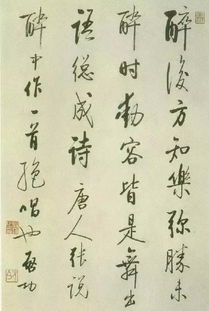 醉後方知樂弥勝未
醉时動容皆是舞出
语總成诗 唐人張说
醉中作一首絕唱也 启功